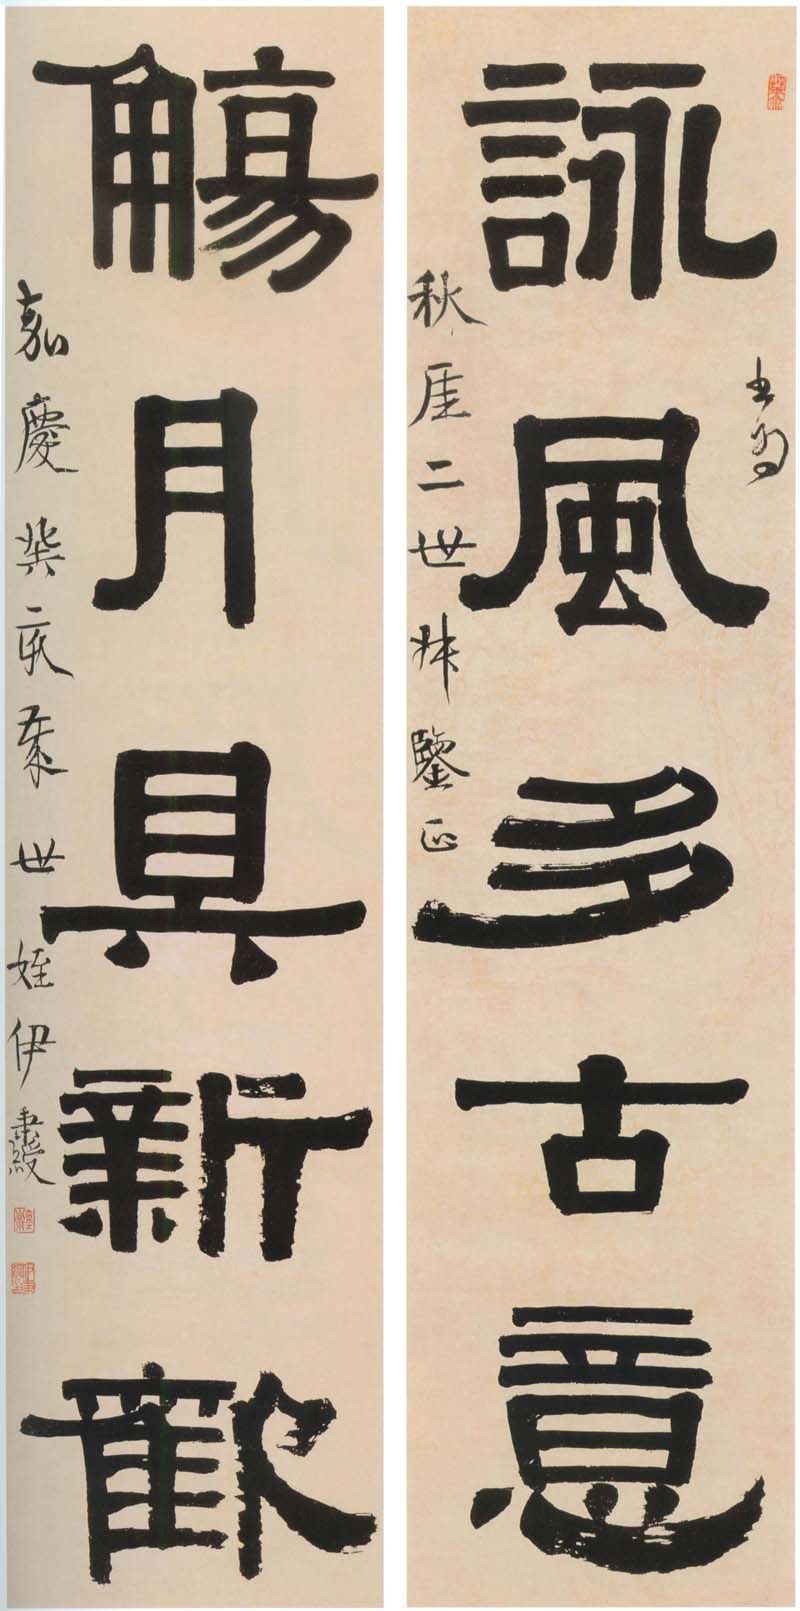 書為
詠風多古意
秋厓二世叔鑒正
觴月具新歡
嘉慶癸亥世姪伊秉綬